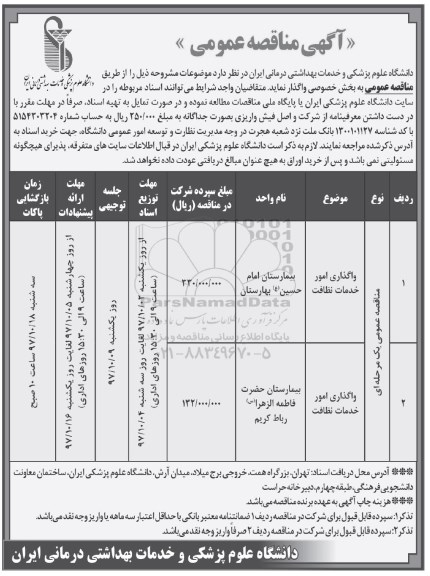 « آگهی مناقصه عمومی »
دانشگاه علوم پزشکی و خدمات بهداشتی درمانی ایران
دانشگاه علوم پزشکی و خدمات بهداشتی درمانی ایران در نظر دارد موضوعات مشروحه ذیل را از طریق
مناقصه عمومی به بخش خصوصی واگذار نماید. متقاضیان واجد شرایط می‌توانند اسناد مربوطه را در
سایت دانشگاه علوم پزشکی ایران یا پایگاه ملی مناقصات مطالعه نموده و در صورت تمایل به تهیه اسناد، صرفاً در مهلت مقرر با
در دست داشتن معرفینامه از شرکت و اصل فیش واریزی بصورت جداگانه به مبلغ ۲۵۰/۰۰۰ ریال به حساب شماره ۵۱۵۴۳۰۳۲۰۴
با کد شناسه ۱۳۰۰۱۰۱۱۲۷ بانک ملت نزد شعبه هجرت در وجه مدیریت نظارت و توسعه امور عمومی دانشگاه، جهت خرید اسناد به
آدرس ذکر شده مراجعه نمایند. لازم به ذکر است دانشگاه علوم پزشکی ایران در قبال اطلاعات سایت های متفرقه، پذیرای هیچگونه
مسئولیتی نمی باشد و پس از خرید اوراق به هیچ عنوان مبالغ دریافتی عودت داده نخواهد شد.
ردیف نوع موضوع نام واحد مبلغ سپرده شرکت در مناقصه (ریال) مهلت توزیع اسناد جلسه توجیهی مهلت ارائه پیشنهادات زمان بازگشایی پاکات
۱ واگذاری امور خدمات نظافت بیمارستان امام حسین(ع) بهارستان ۳۲۰/۰۰۰/۰۰۰
مناقصه عمومی یک مرحله ای
از روز یکشنبه ۹۷/۱۰/۰۲ لغایت روز سه شنبه ۹۷/۱۰/۰۴ (ساعت ۹ الی ۱۵:۳۰ روزهای اداری)
روز یکشنبه ۹۷/۱۰/۰۹
از روز چهارشنبه ۹۷/۱۰/۰۵ لغایت روز یکشنبه ۹۷/۱۰/۱۶ (ساعت ۹ الی ۱۵:۳۰ روزهای اداری)
سه شنبه ۹۷/۱۰/۱۸ ساعت ۱۰ صبح
۲ واگذاری امور خدمات نظافت بیمارستان حضرت فاطمه الزهرا(س) رباط کریم ۱۳۲/۰۰۰/۰۰۰
ParsNamadData
پایگاه اطلاع رسانی مناقصه و مزایده
۰۲۱-۸۸۳۴۹۶۷۰-۵
*** آدرس محل دریافت اسناد: تهران، بزرگراه همت، خروجی برج میلاد، میدان آرش، دانشگاه علوم پزشکی ایران، ساختمان معاونت
دانشجویی فرهنگی، طبقه چهارم، دبیرخانه حراست
*** هزینه چاپ آگهی به عهده برنده مناقصه می‌باشد.
تذکر۱: سپرده قابل قبول برای شرکت در مناقصه ردیف ۱ ضمانتنامه معتبر بانکی با حداقل اعتبار سه ماهه یا واریز وجه نقد می‌باشد.
تذکر۲: سپرده قابل قبول برای شرکت در مناقصه ردیف ۲ صرفاً واریز وجه نقد می‌باشد.
دانشگاه علوم پزشکی و خدمات بهداشتی درمانی ایران